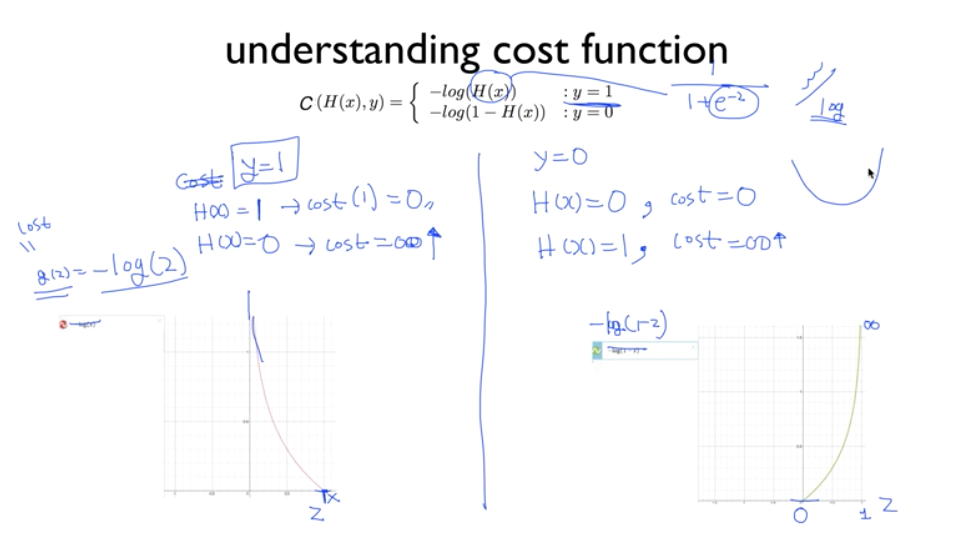 understanding cost function
C (H(x), y) = { -log(H(x)) : y = 1
-log(1 - H(x)) : y = 0
1
1+e^-z
log
Cost y=1
H(x) = 1 → cost(1) = 0,,
H(x) = 0 → cost = ∞ ↑
cost
||
g(z) = -log(z)
x
z
y=0
H(x) = 0 , cost = 0
H(x) = 1 , cost = ∞ ↑
-log(1-z)
∞
0 1 z